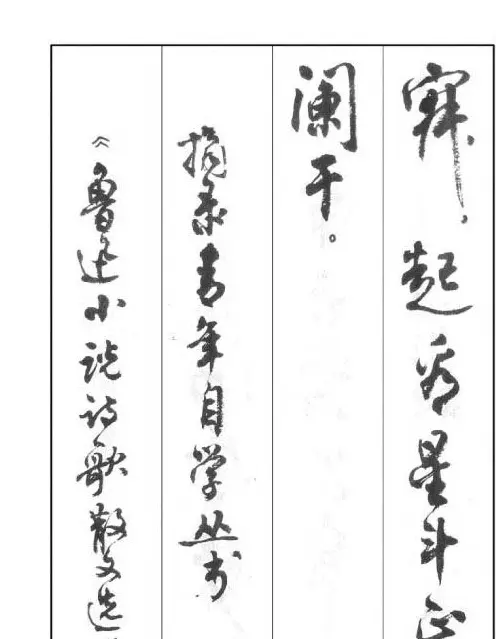 寐，起看星斗正
阑干。
摘录青年自学丛书
《鲁迅小说诗歌散文选